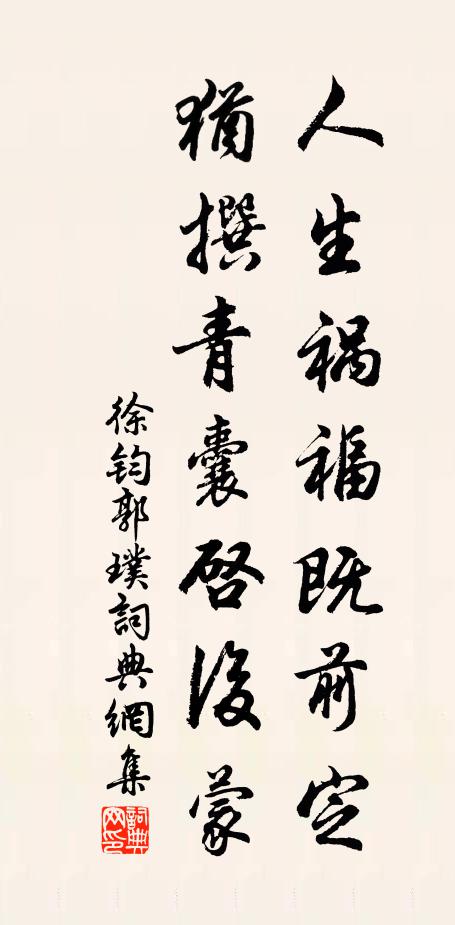 人生禍福既前定
猶撰青囊啓後蒙
徐鈞郭璞詞典網集
詞典网印